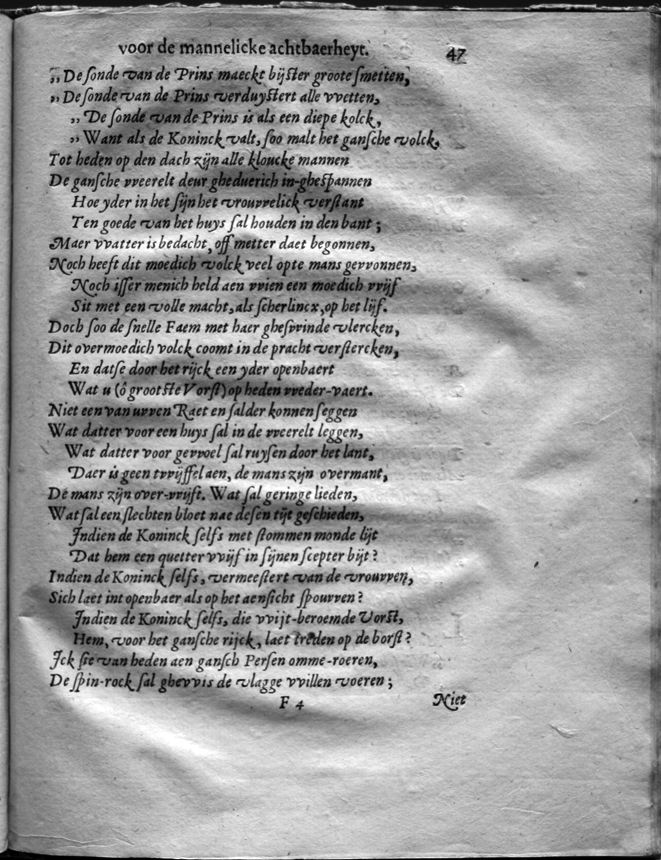 voor de mannelicke achtbaerheyt. 47
„ De sonde van de Prins maeckt bijster groote smetten,
„ De sonde van de Prins verduystert alle vvetten,
„ De sonde van de Prins is als een diepe kolck,
„ Want als de Koninck valt, soo malt het gansche volck.
Tot heden op den dach zijn alle kloucke mannen
De gansche vveerelt deur gheduerich in-ghespannen
Hoe yder in het sijn het vrouvvelick verstant
Ten goede van het huys sal houden in den bant;
Maer vvatter is bedacht, off metter daet begonnen,
Noch heeft dit moedich volck veel opte mans gevvonnen,
Noch isser menich held aen vvien een moedich vvijf
Sit met een volle macht, als scherlincx, op het lijf.
Doch soo de snelle Faem met haer ghesvvinde vlercken,
Dit overmoedich volck coomt in de pracht verstercken,
En datse door het rijck een yder openbaert
Wat u (ô grootste Vorst) op heden vveder-vaert.
Niet een van uvven Raet en salder konnen seggen
Wat datter voor een huys sal in de vveerelt leggen,
Wat datter voor gevvoel sal ruysen door het lant,
Daer is geen tvvijffel aen, de mans zijn overmant,
De mans zijn over-vvijft. Wat sal geringe lieden,
Wat sal een slechten bloet nae desen tijt geschieden,
Indien de Koninck selfs met stommen monde lijt
Dat hem een quetter vvijf in sijnen scepter bijt?
Indien de Koninck selfs, vermeestert van de vrouvven,
Sich laet int openbaer als op het aensicht spouvven?
Indien de Koninck selfs, die vvijt-beroemde Vorst,
Hem, voor het gansche rijck, laet treden op de borst?
Ick sie van heden aen gansch Persen omme-roeren,
De spin-rock sal ghevvis de vlagge vvillen voeren;
F 4 Niet